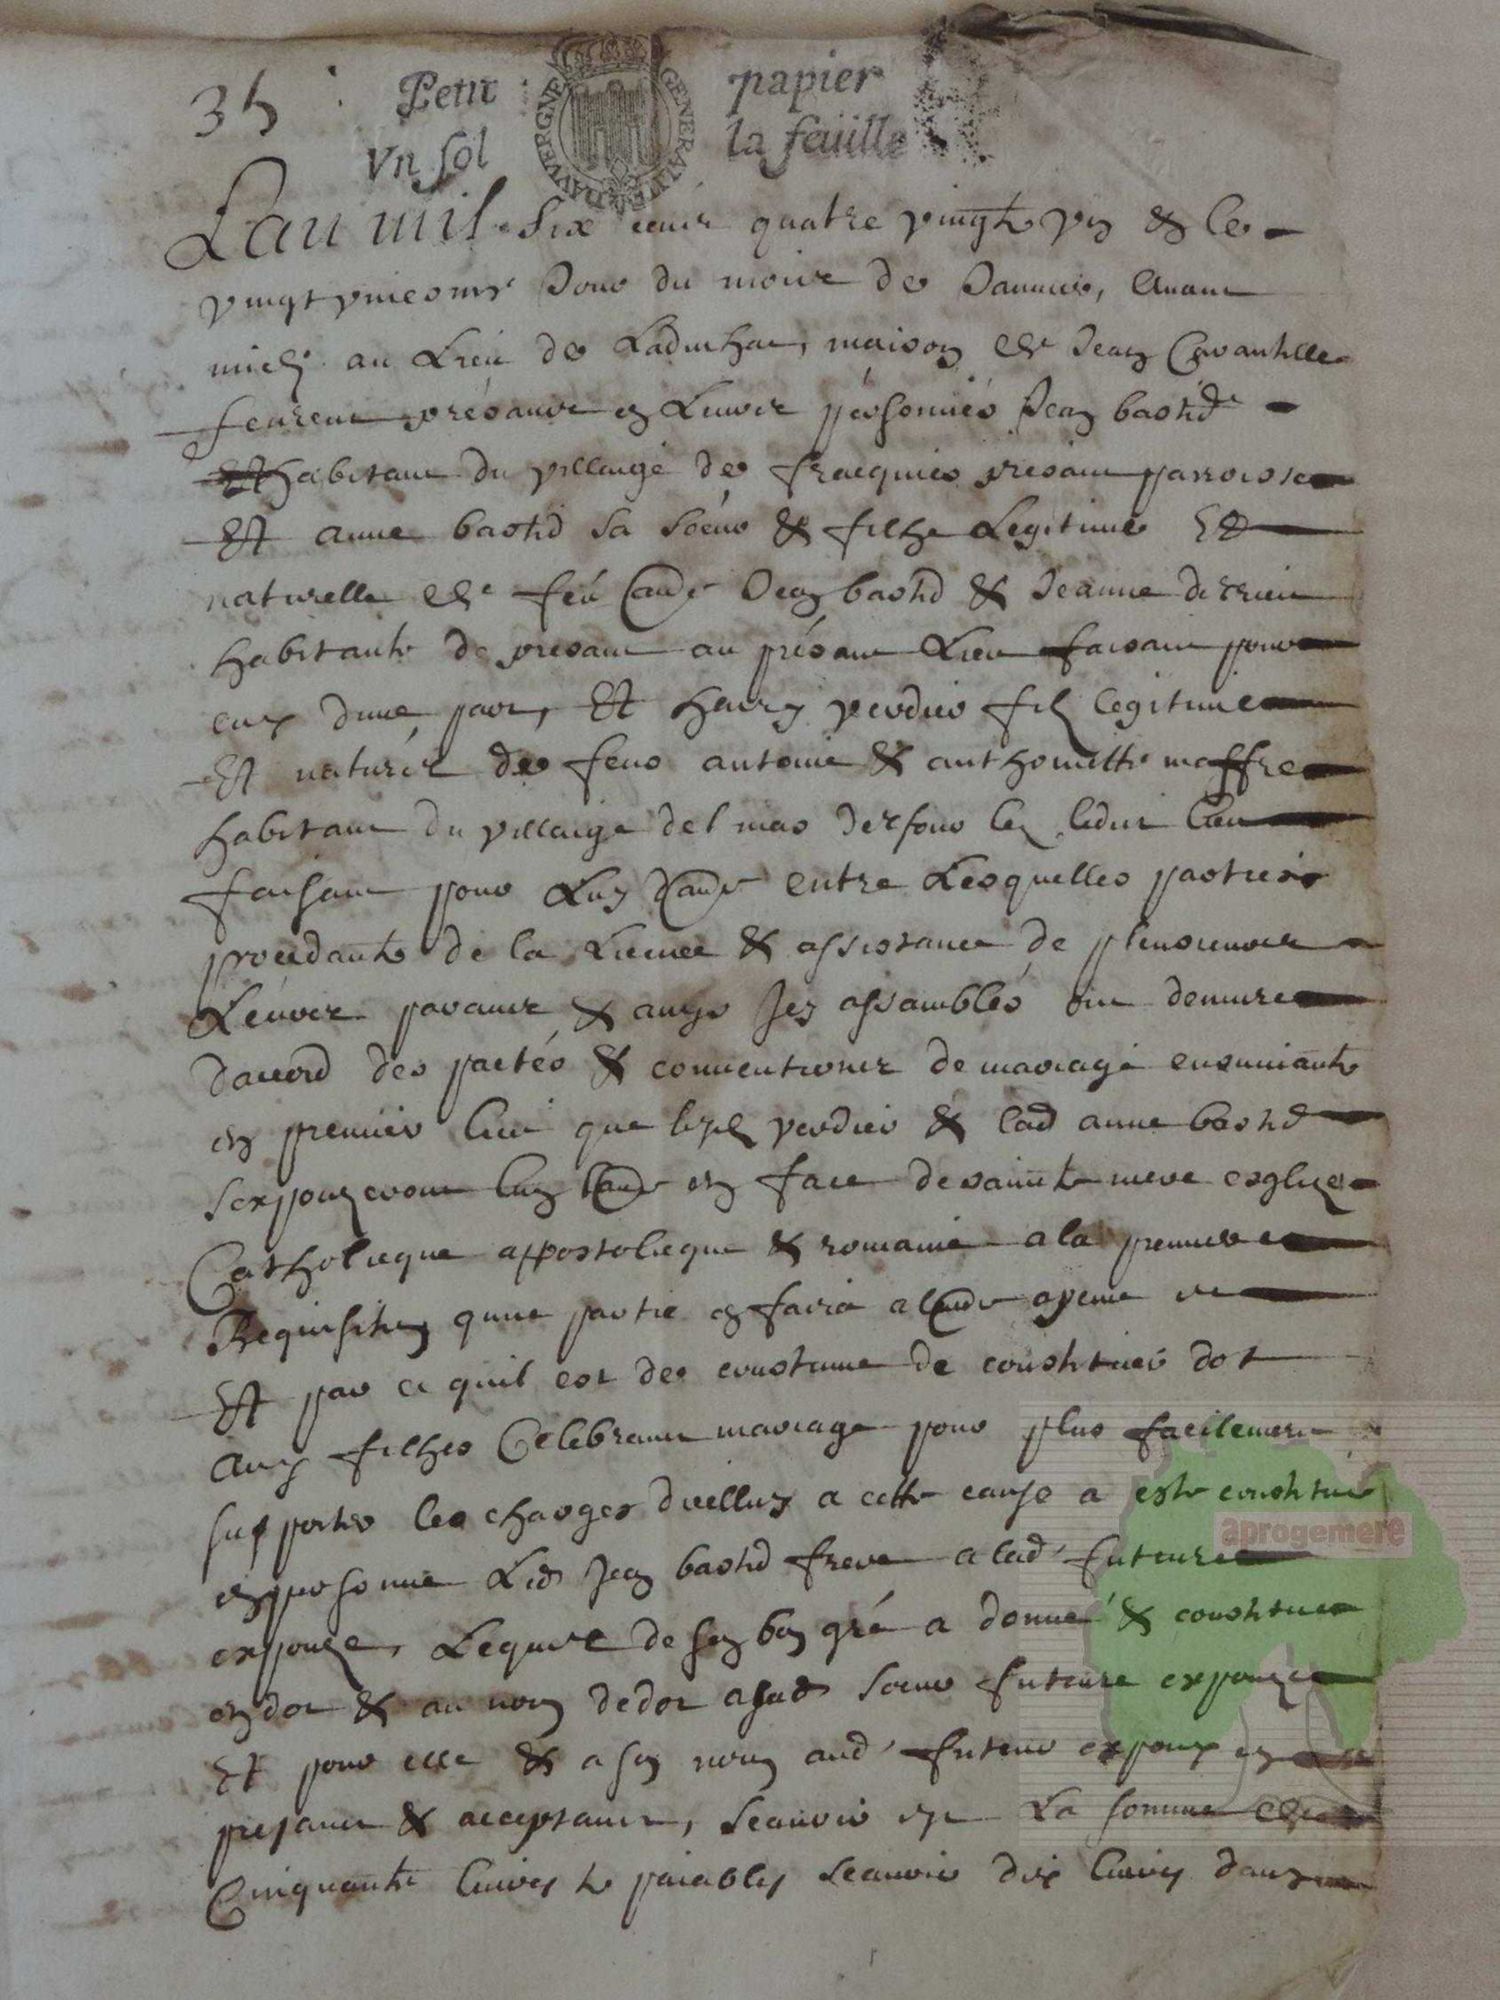 35
Petit papier
Vn sol la feüille
GENERALITE DAUVERGNE
Lan mil six cens quatre vingts vn & le
vingt vniesme Jour du mois de Januier, auant
midy au Lieu de Ladinhac, maison de Jean
feurent présants en Leurs personnes Jean bastid
habitant du villaige de fracquies présant parroisse
Et anne bastid sa soeur & filhe Legitime Et
naturelle de feu Jean bastid & Jeanne
habitants de présant au présant Lieu faisant pour
eux dune part, Et hanry verdier filz legitime
Et naturel de feus antoine & anthonietthe maffre
habitant du villaige del mas ledit lieu
faisant pour Luy daudt entre Lesquelles parties
procedants de la Licence & assistance de plusieurs
Leurs parants & amys Icy assamblés ont demuré
daccord des pactés & conuentions de mariage ensuiuants
en premier lieu que verdier & lad anne bastid
sexpouzeront en face de saincte mere esglize
Catholicque appostolicque & romaine a la premiere
Requisition qune partie en faira a laudt apeine
Et par ce quil est de coustume de constituer dot
aux filhes Celebrant mariage pour plus facilement
supporter les charges dicelluy a cette cause a esté constitué
en personne Led Jean bastid frere a lad future
expouze, Lequel de son bon gré a donné & constitué
en dot & au nom de dot a sad soeur future expouze
Et pour elle & a son nom aud futeur expoux
presant & acceptant, scauoir est La somme de
Cinquante liures ts paiables scauoir dix liures dans
aprogemere